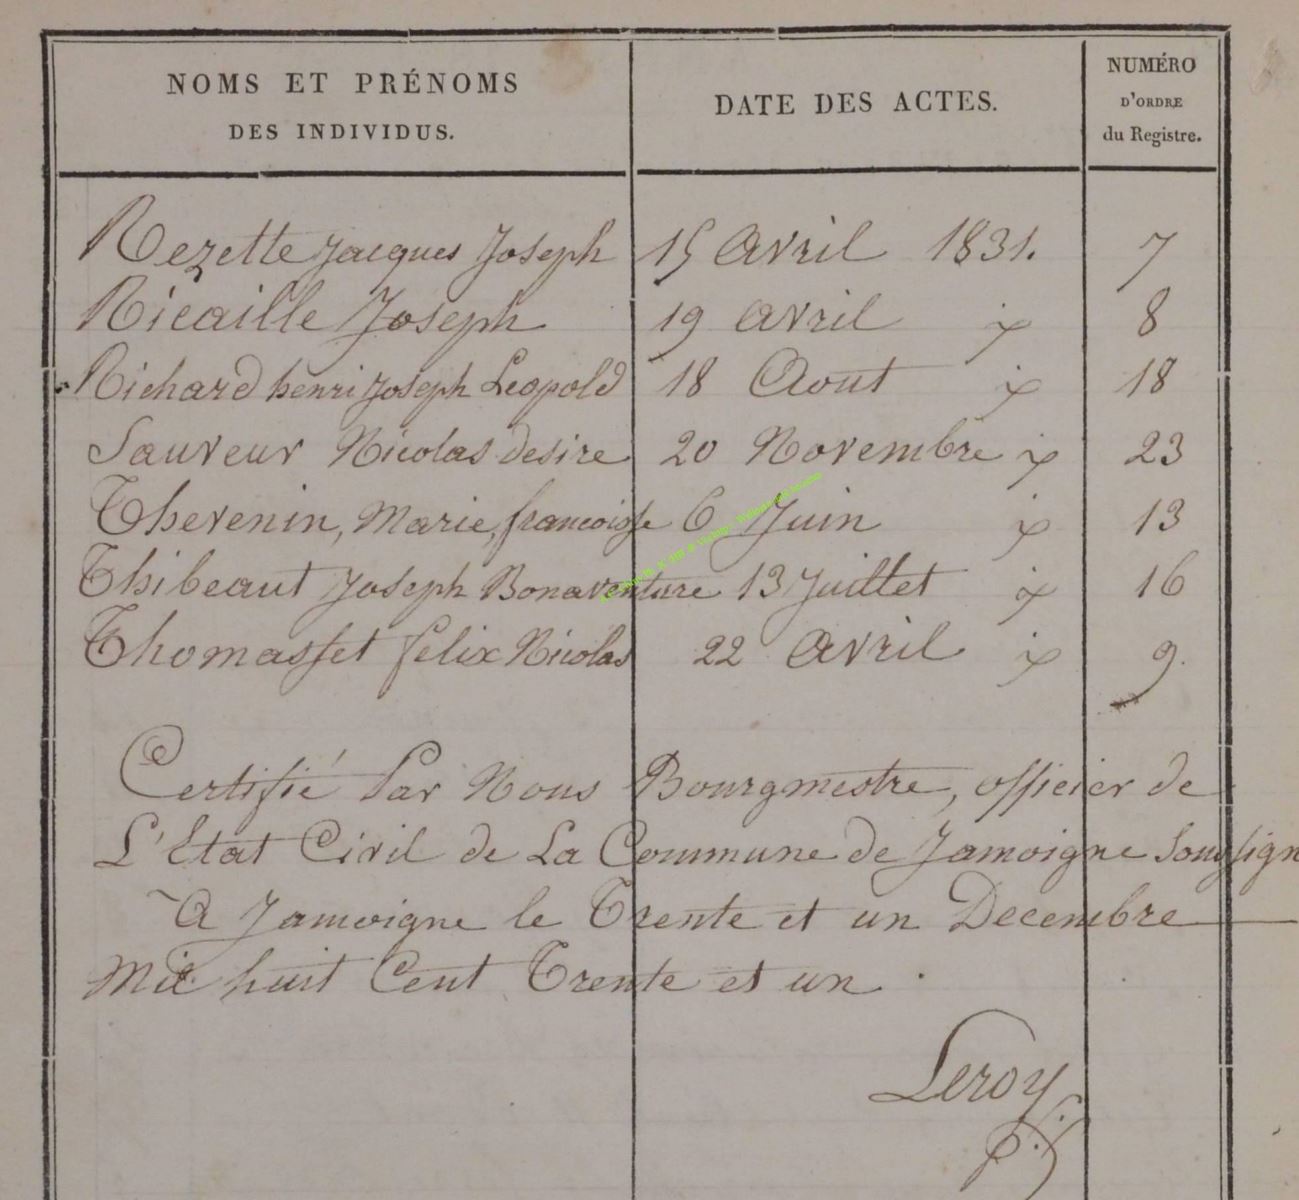 NOMS ET PRÉNOMS
DES INDIVIDUS.
DATE DES ACTES.
NUMÉRO
D'ORDRE
du Registre.
Rezette Jacques Joseph 15 Avril 1831. 7
Ricaille Joseph 19 avril 8
Richard henri Joseph Leopold 18 Aout 18
Sauveur Nicolas desire 20 Novembre 23
Thevenin, Marie, francoisse 6 Juin 13
Thibeaut Joseph Bonaventure 13 Juillet 16
Thomasset felix Nicolas 22 Avril 9.
Certifié Par Nous Bourgmestre, officier de
L'Etat Civil de La Commune de Jamoigne Soussign
A Jamoigne le Trente et un Decembre
Mil huit Cent Trente et un.
Leroy